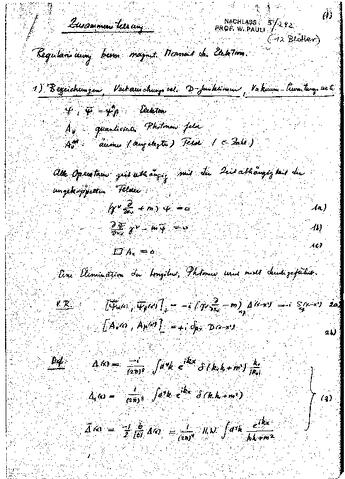 (1)
Zusammenfassung
NACHLASS 5/292
PROF. W. PAULI
(12 Blätter)
Regularisierung beim magnet. Moment des Elektrons.
1) Bezeichnungen, Vertauschungsrel. D-funktionen, Vakuum-Erwartungswerte
ψ, ψ̄ = ψ*β Elektron
Aν quantisiertes Photonenfeld
äusseres (angelegtes) Feld (c-Zahl)
Alle Operatoren zeitabhängig mit der Zeitabhängigkeit der
ungekoppelten Felder
(γ^ν ∂/∂xν + m) ψ = 0 1a)
∂ψ̄/∂xν γ^ν − mψ̄ = 0 1b)
□ Aν = 0 1c)
Eine Elimination der longitud. Photonen wird nicht durchgeführt.
V.R. = −i (γ^ν ∂/∂xν − m) Δ(x−x') = −i S(x−x') 2a)
[Aν(x), Aμ(x')]₋ = +i δμν D(x−x') 2b)
Def. Δ(x) = −i/(2π)³ ∫d⁴k e^{ikx} δ(k,k+m²) k₀/|k₀|
Δ₁(x) = 1/(2π)³ ∫d⁴k e^{ikx} δ(k,k+m²) (3)
Δ̄(x) = −1/2 Δ(x) = 1/(2π)⁴ H.W. ∫d⁴k e^{ikx}/(kk+m²)